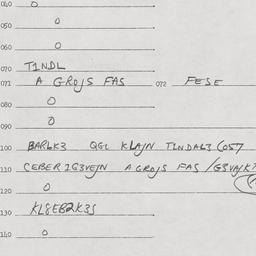 040 0
050 0
060 0
070 T1NDL
071 A GROJS FAS 072 FESE
080 0
090 0
100 BARLK3 QGL KLAJN T1NDAL3 (057
110 CEBER1G3VEJN A GROJS FAS /G3VAJK?
120 0
130 KL8EB2K3S
140 0